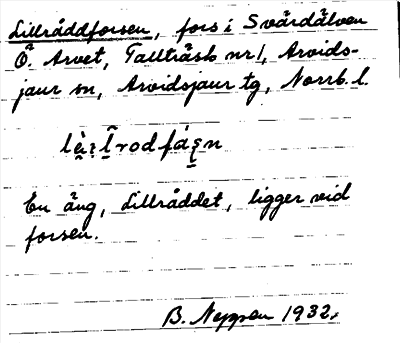 Lillråddforsen, fors i Svärdälven
Ö. Arvet, Tallträsk nr 1, Arvids-
jaur sn, Arvidsjaur tg, Norrb. l.
En äng, Lillråddet, ligger vid
forsen.
B. Nyman 1932.